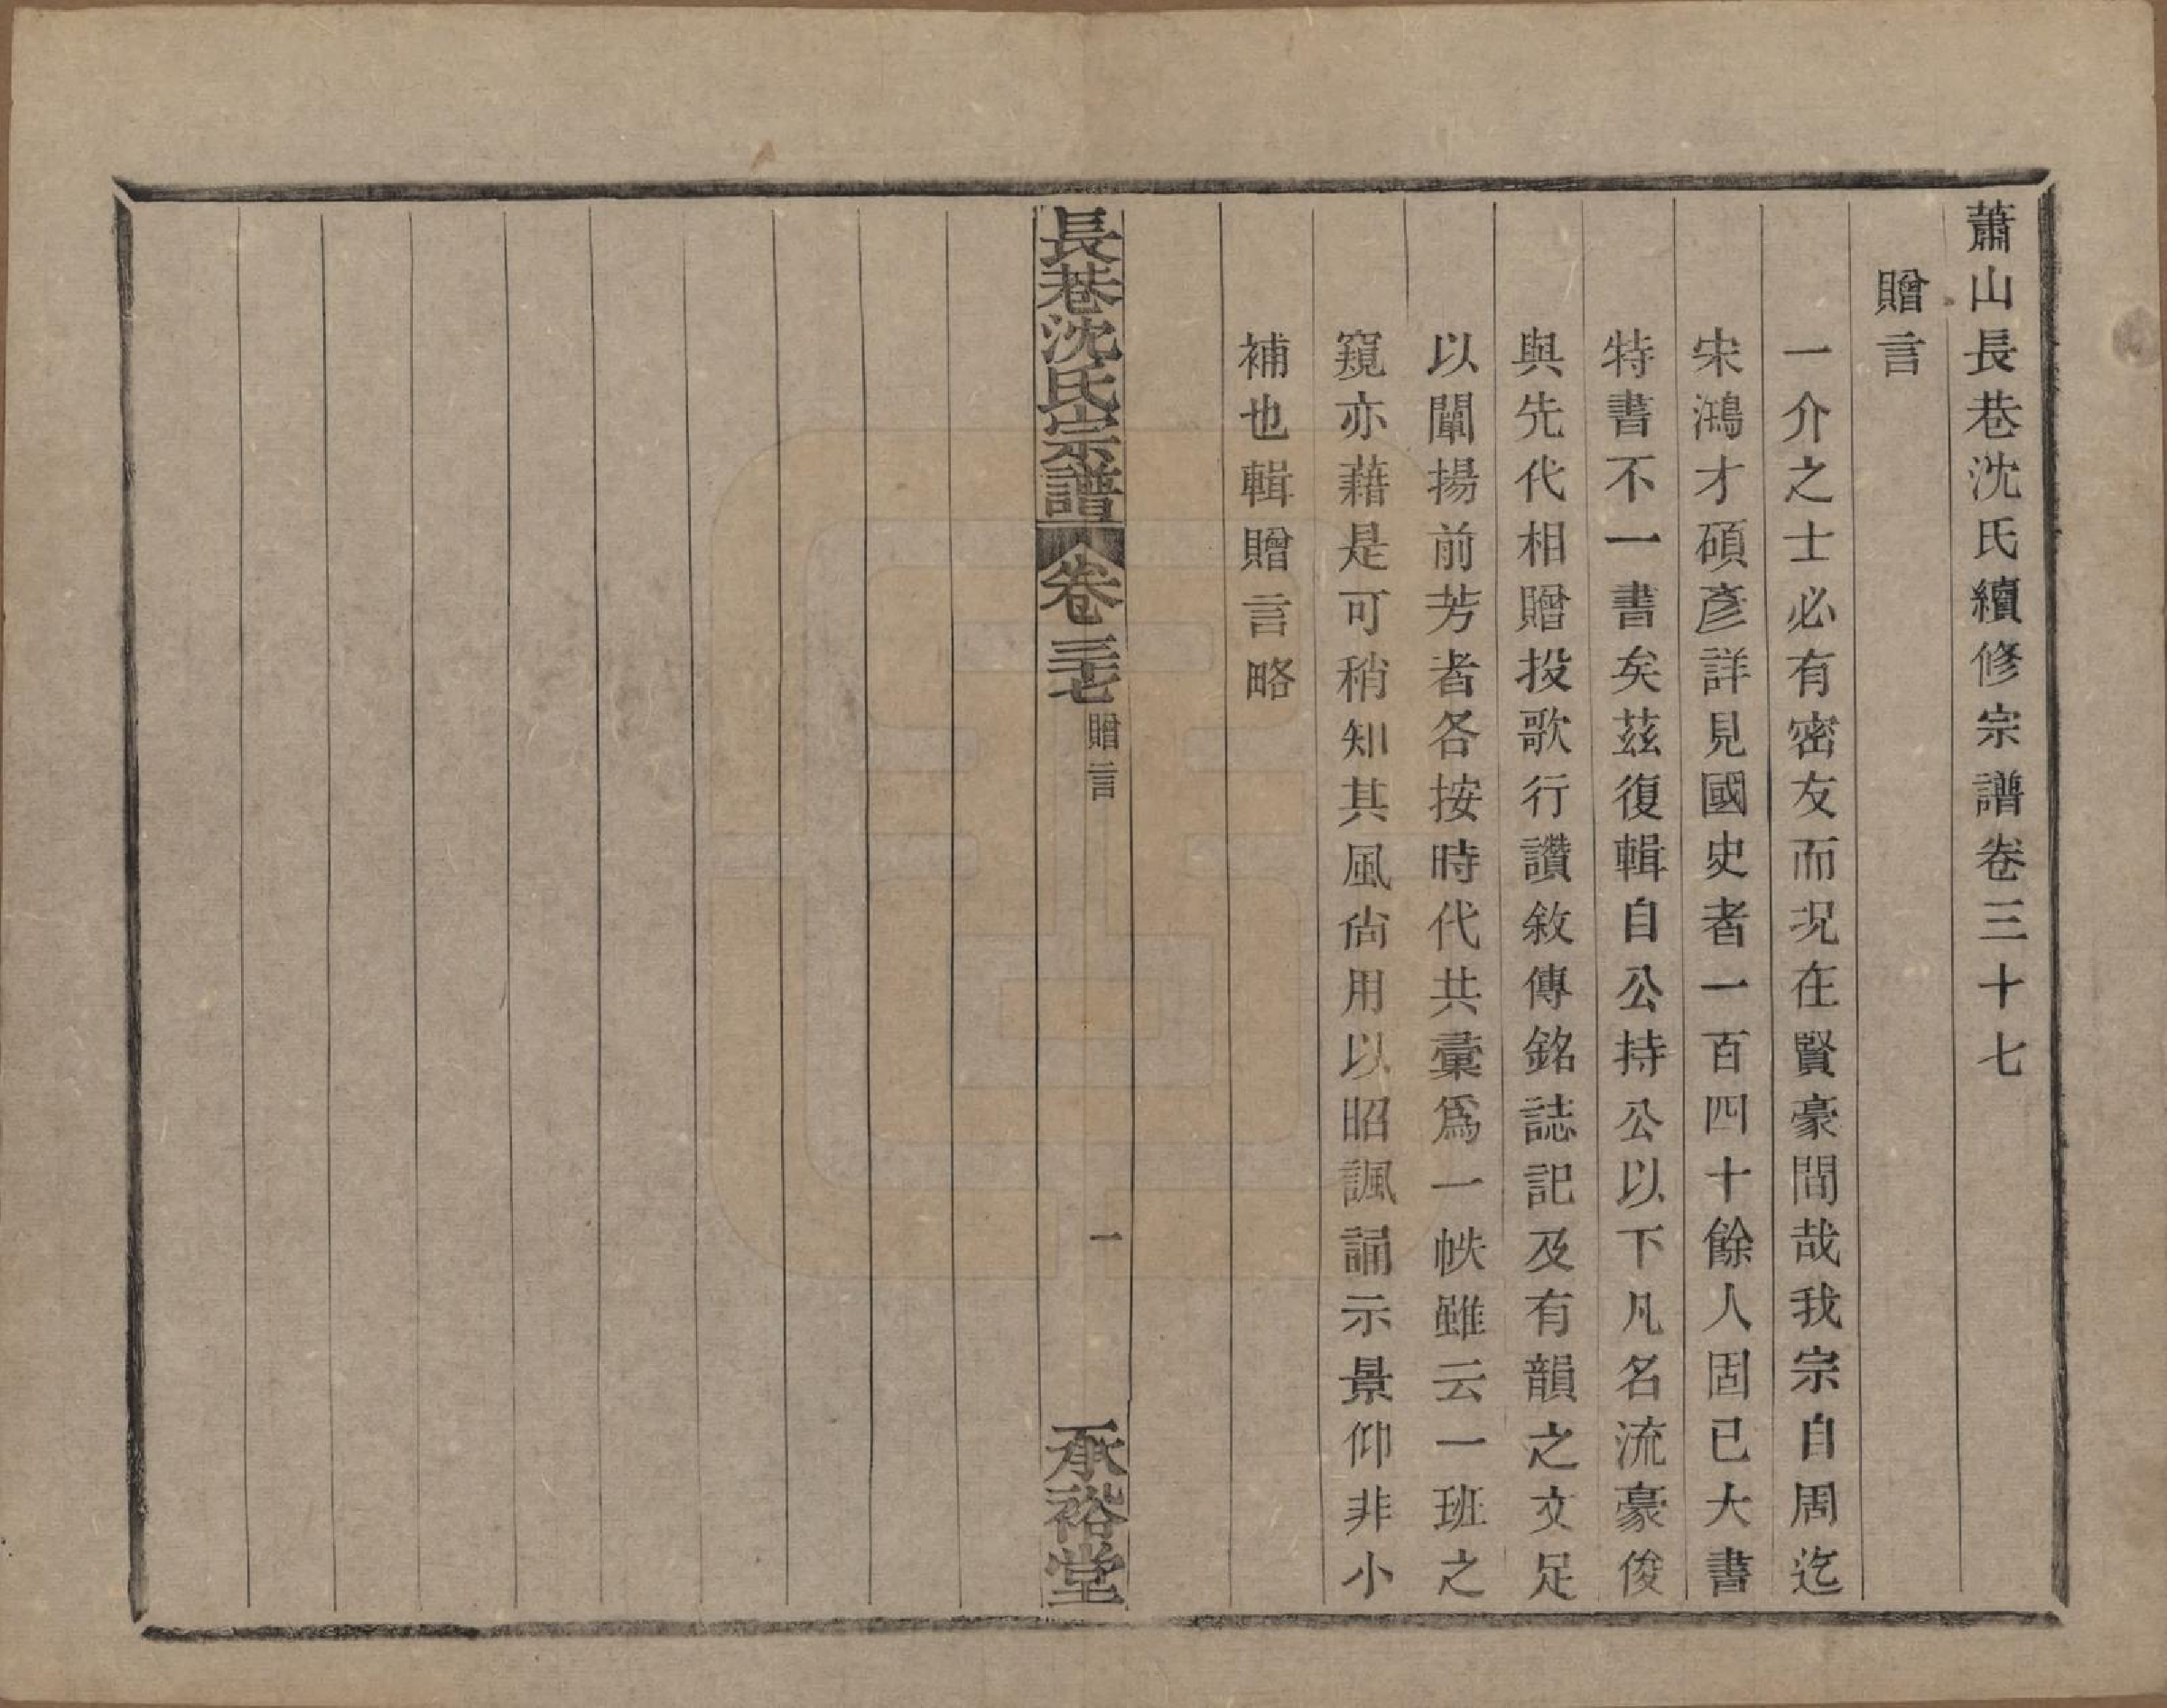 蕭山長巷沈氏續修宗譜卷三十七
贈言
一介之士必有密友而况在賢豪間哉我宗自周迄
宋鴻才碩彥詳見國史者一百四十餘人固已大書
特書不一書矣茲復輯自公持公以下凡名流豪俊
與先代相贈投歌行讚敘傳銘誌記及有韻之文足
以闡揚前芳者各按時代共彙爲一帙雖云一班之
窺亦藉是可稍知其風尙用以昭諷誦示景仰非小
補也輯贈言略
長巷沈氏宗譜 卷三十七 贈言 一 承裕堂